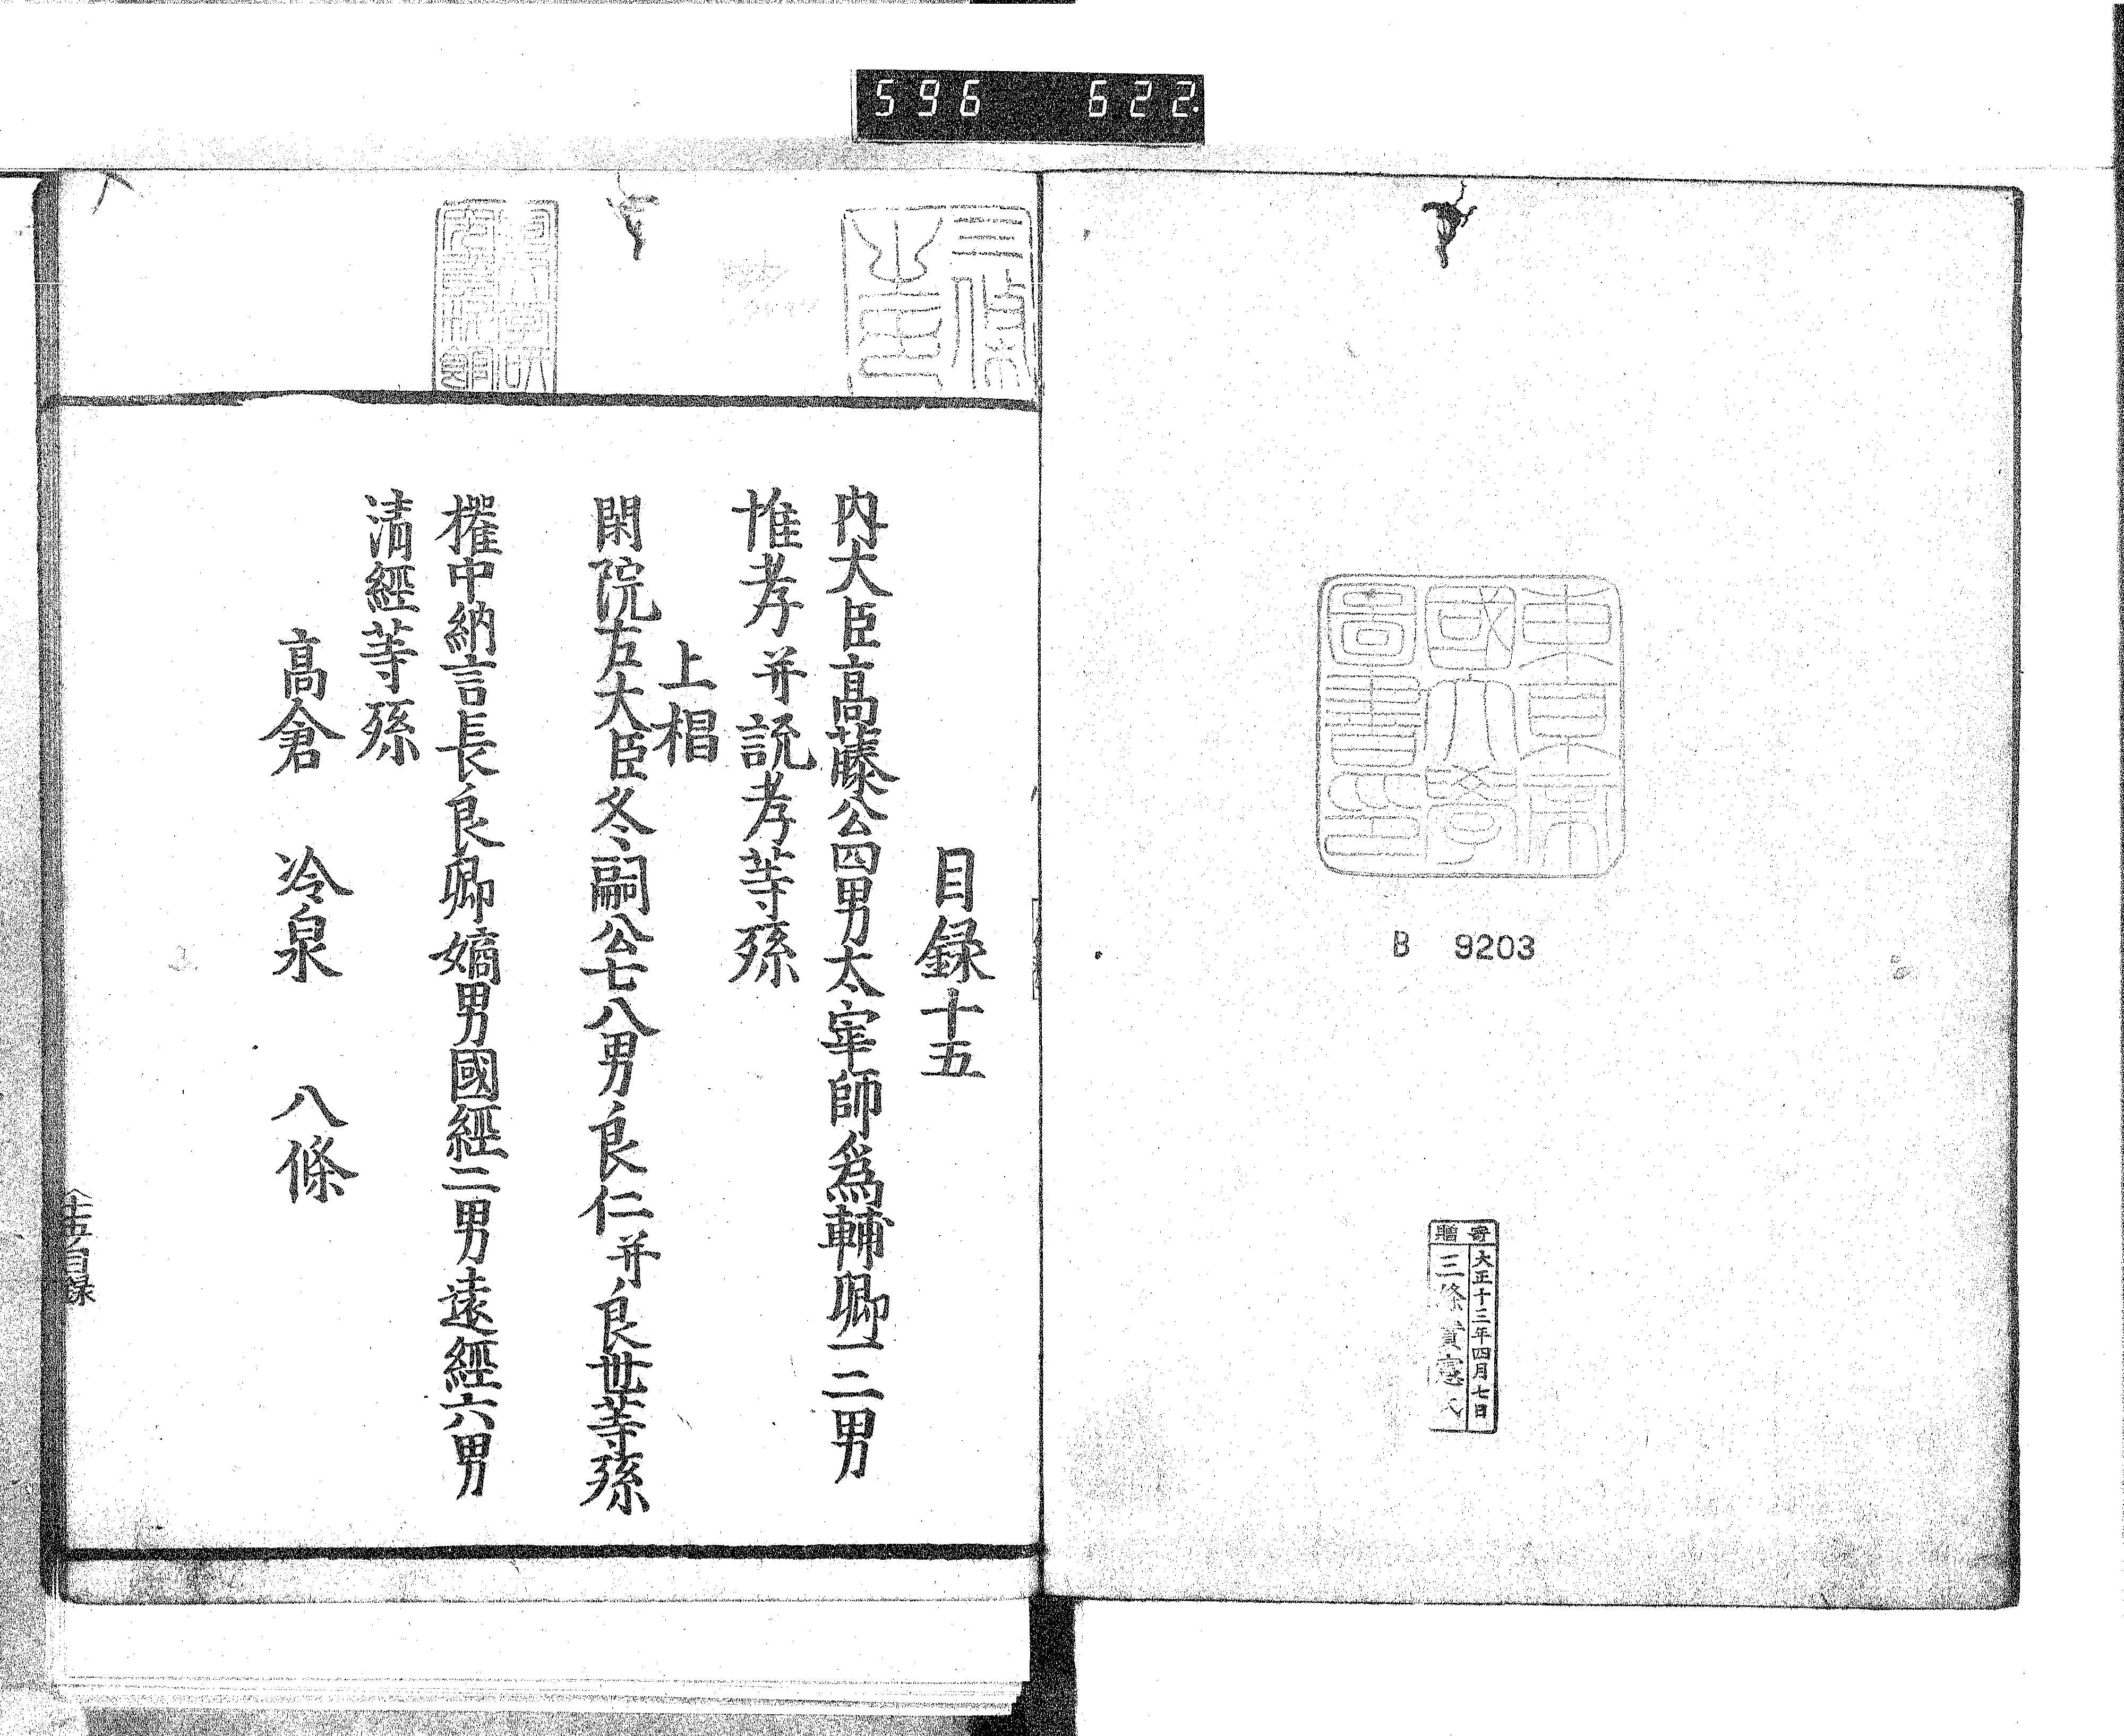 596 622.
東京帝
國大學
圖書印
B 9203
寄贈
大正十三年四月七日
三條實憲氏
三條
目録十五
内大臣高藤公四男太宰師爲輔卿一二男
惟孝并説孝等孫
上椙
閑院左大臣冬嗣公七八男良仁并良世等孫
權中納言長良卿嫡男國經二男遠經六男
清經等孫
高倉 冷泉 八條
十五ノ目録